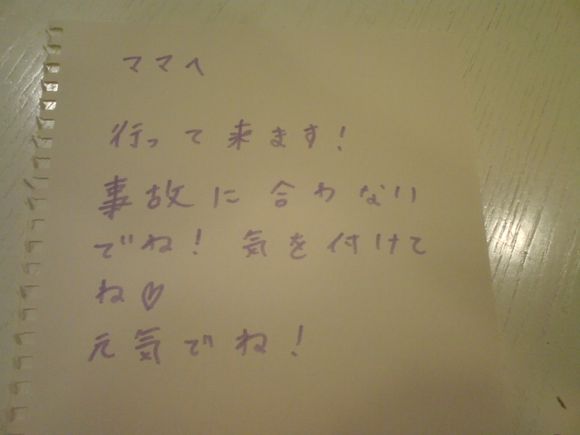 ママへ
行って来ます!
事故に合わない
でね!気を付けて
ね♡
元気でね!